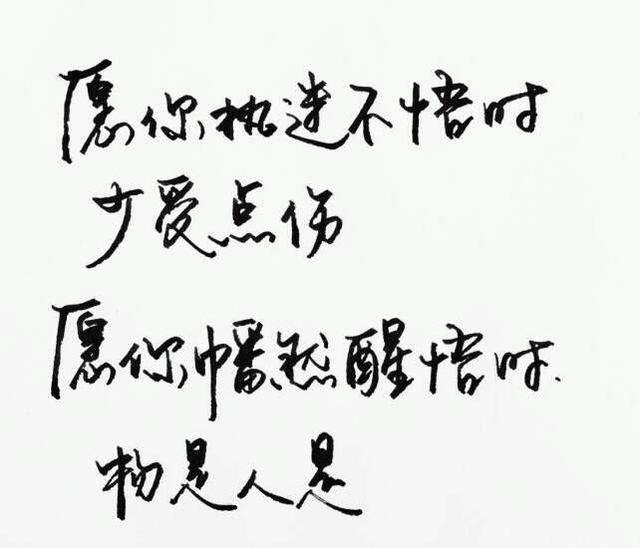 愿你执迷不悟时
少受点伤
愿你幡然醒悟时.
物是人是